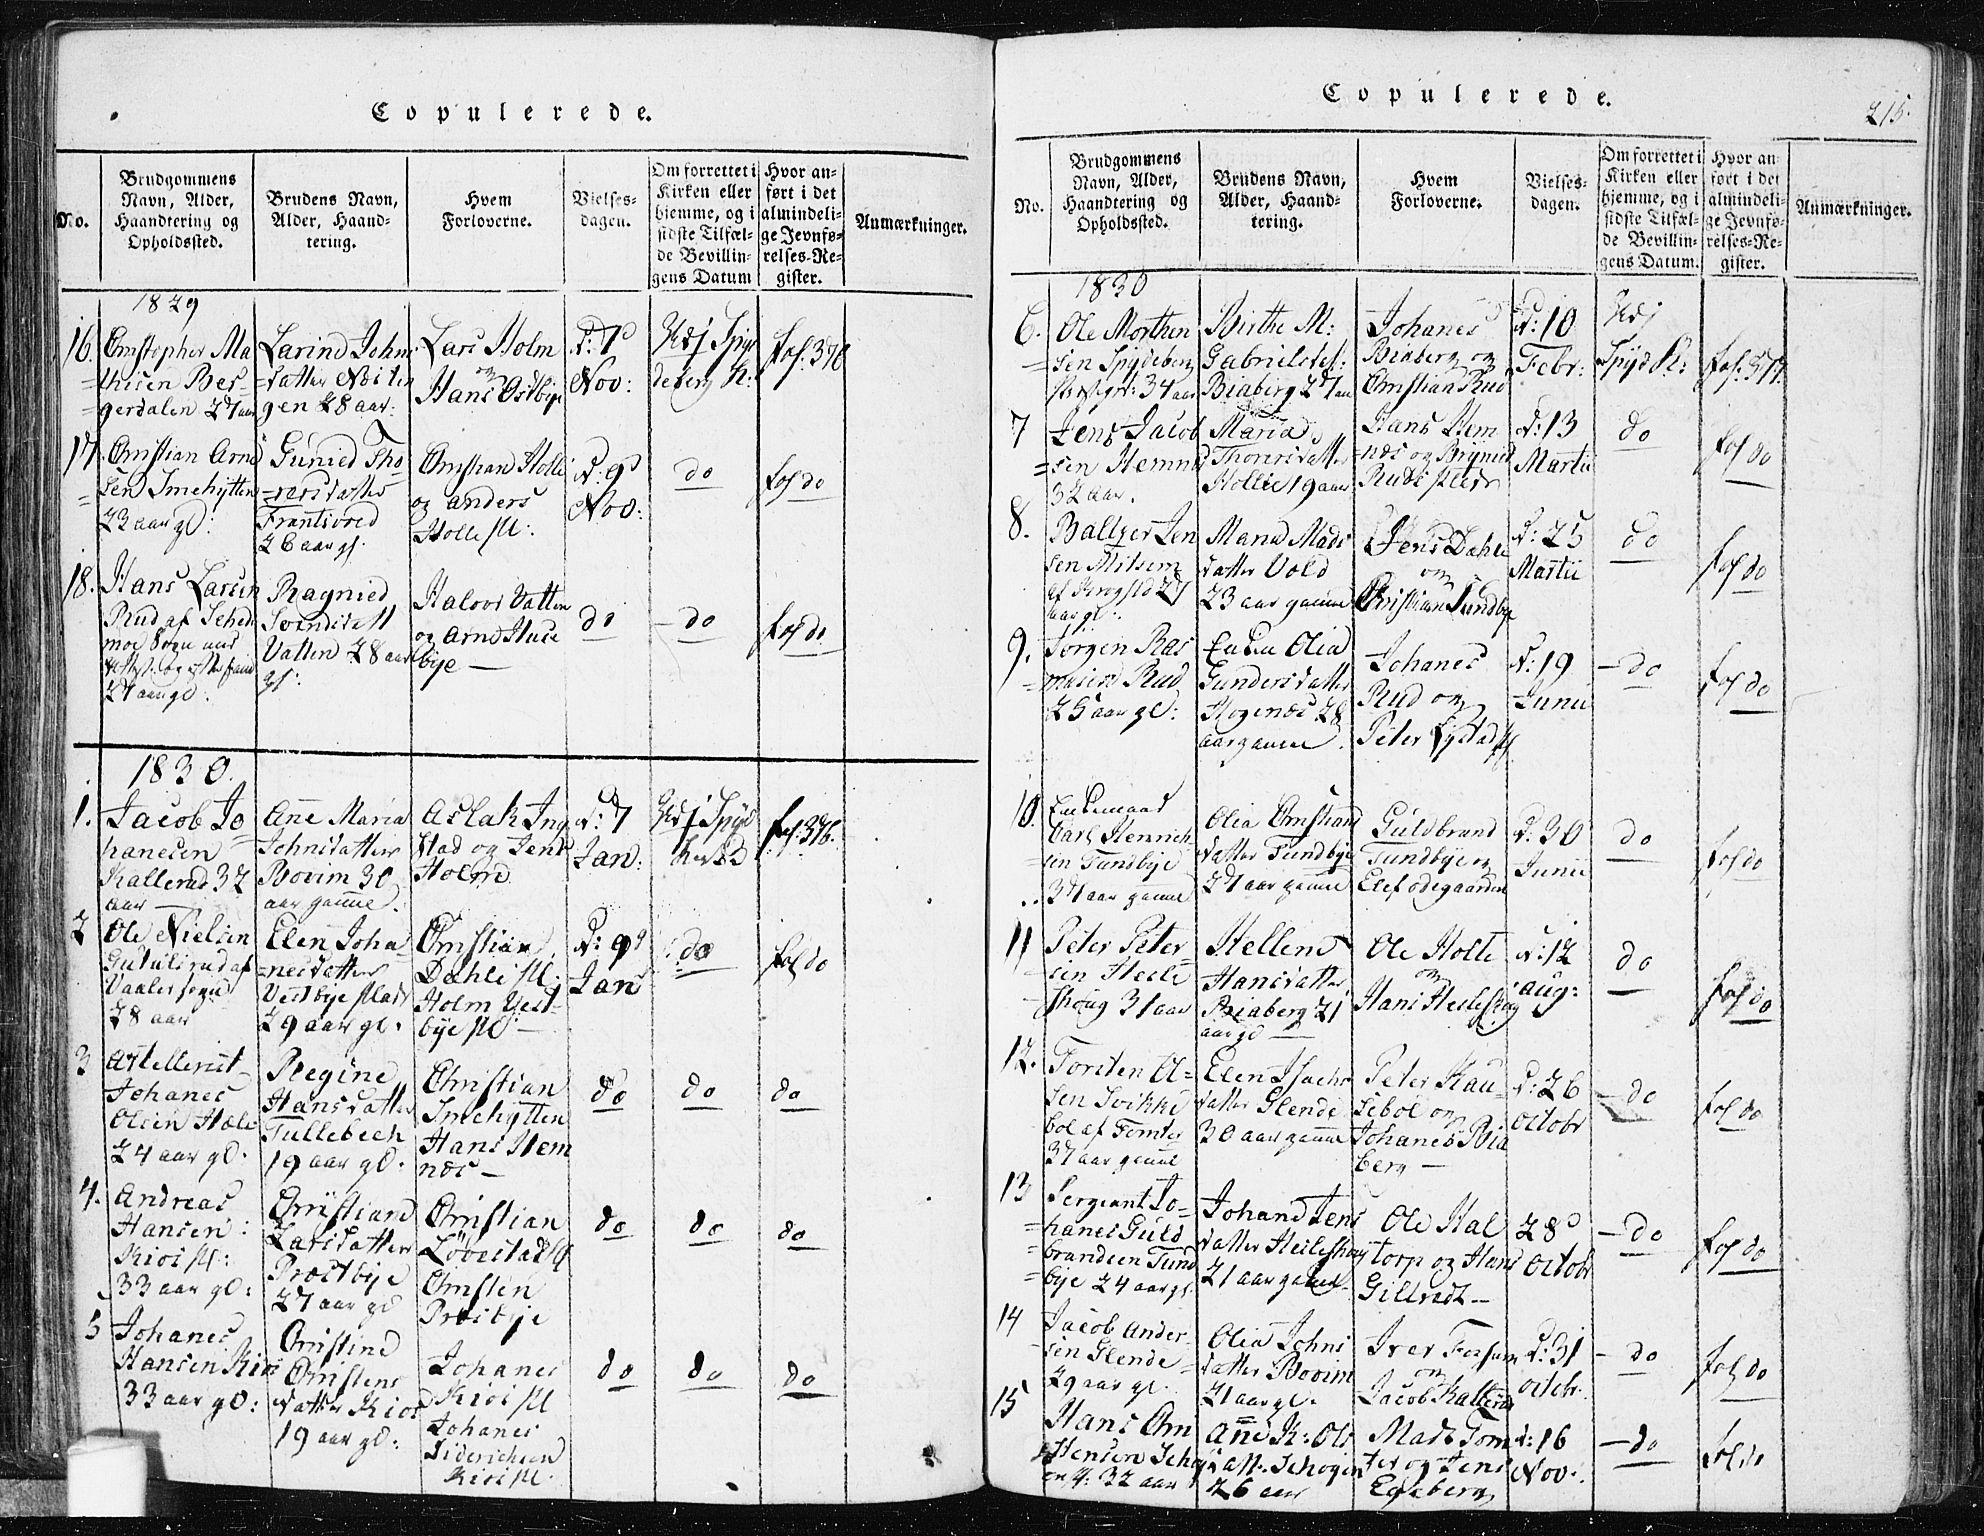 Copulerede.
No.
Brudgommens
Navn, Alder,
Haandtering og
Opholdssted.
Brudens Navn,
Alder, Haand-
tering.
Hvem
Forloverne.
Vielses-
dagen.
Om forrettet i
Kirken eller
hjemme, og i
sidste Tilfæl-
de Bevillin-
gens Datum
Hvor an-
ført i det
almindeli-
ge Jevnfø-
relses-Re-
gister.
Anmærkninger.
1829
16.
Christopher Ma
=thisen Ber-
=gerdalen 27 aar
Larine Johns
=datter Nösten
gen 28 aar:
Lars Holm
og
Hans Östbye
D: 7de
Nov:
Udj Spyd
deberg K:
fol. 376
17.
Christian Arne
=sen Smehytten
23 aar gl:
Gunild Tho-
=resdatter
Frantsvoed
26 aar gl.
Christian Holle
og Anders
Holle Pl:
D: 9de
Nov:
do
fol do
18.
Hans Larsen
Rud af Schied
moe Sogn
27 aar gl:
Ragnied
Svendsdatt
Vatten 28 aar
gl:
Halvor Vatten
og Arne Huse
bye —
do
— do
fol do
1830.
1.
Jacob Jo
hanesen
Kallerud 32
aar —
Ane Maria
Johnsdatter
Bovim 30
aar gamel.
Aslak Ing
stad og Jens
Holm
D: 7
Jan:
Udj Spyd
fol. 376.
2
Ole Nielsen
Gutulsrud af
Vaaler sogn
28 aar
Elen Joha
=nesdatter
Vestbye Plads
29 aar gl.
Christian
Dahle Pl:
Holm Vest-
bye Pl —
D: 9de
Jan
do
fol do
3
Artellerist
Johanes
Olsen Hæle
24 aar gl.
Regine
Hansdatter
Tullebech
19 aar gl.
Christian
Smehytten
Hans Hem
næs —
do
do
do
4.
Andreas
Hansen
Kios Pl:
33 aar gl:
Christiane
Larsdatter
Præstbye
27 aar gl
Christian
Lövestad Pl
Christen
Præstbye
do
do
do
5
Johanes
Hansen Kios
33 aar gl:
Christine
Christens
datter Kios
19 aar gl:
Johanes
Kios Pl
Johanes
Diderichsen
Kios Pl.
do
do
do
Copulerede.
215.
No.
Brudgommens
Navn, Alder,
Haandtering og
Opholdssted.
Brudens Navn,
Alder, Haand-
tering.
Hvem
Forloverne.
Vielses-
dagen.
Om forrettet i
Kirken eller
hjemme, og i
sidste Tilfæl-
de Bevillin-
gens Datum.
Hvor an-
ført i det
almindeli-
ge Jevnfø-
relses-Re-
gister.
Anmærkninger.
1830
6.
Ole Morthen
=sen Spydeberg
Præstgrd: 34 aar
Birthe M:
Gabrielsdt:
Biaberg 27 aar
Johanes
Biaberg og
Christian Rud
D: 10
Febr:
Udj
Spyd K:
fol. 377.
7
Jens Jacob
=sen Hemnes
32 aar.
Maria
Thorersdatter
Hollie 19 aar
Hans Hem
=næs og Brynild
Ruds Pl
D: 13
Martii
do
fol do
8.
Baltzer Jen
sen Mitsem
27
aar gl:
Maria Mads
datter Vold
23 aar gamel
Jens Dahle
og
Christian Tundbye
D: 25
Martii
do
fol do
9.
Jörgen Ras
=musen Rud
25 aar gl:
Enken Olia
Gundersdatter
Hogenæs 28
aar gamel.
Johanes
Rud og
Peter Lystad Pl
D: 19
Junii
— do
fol do
10.
Enkemand
Carl Henrich
sen Tundbye
37 aar gamel
Olia Christians
datter Tundbye
27 aar gamel
Guldbrand
Tundbye og
Elef ödegaarden
D: 30
Junii
do
fol do
11
Peter Peter-
=sen Heile
skoug 31 aar
Hellene
Hansdatter
Biaberg 21
aar gl —
Ole Holte
og
Hans Heileskoug
D: 12
aug:
do
fol do
12.
Torsten Ol-
sen Svikke
bol af Tomter
37 aar gamel
Elen Isachs
datter Glende
30 aar gamel
Peter Kau-
sebol og
Johanes Bia
berg —
D: 26
Octobr
— do
fol do
13
Sergeant Jo-
=hanes Guld
=brandsen Tund
=bye 24 aar gl.
Johane Jens
datter Heileskoug
21 aar gamel
Ole Hal
torp og Hans
Gillredt —
28de
Octobr
— do
fol do
14
Jacob Ander-
sen Glende
29 aar gl.
Olia Johns
datter Bovim
21 aar gl.
Iver Fossum
og
Jacob Kallerud
D: 31
Octobr.
— do
fol do
15
Hans Chri
stensen Schog
32 aar
Ane K: Ols
datt. Schogen
26 aar
Mads Tom
ter og Jens
Egeberg
D: 16
Nov:
— do
fol do